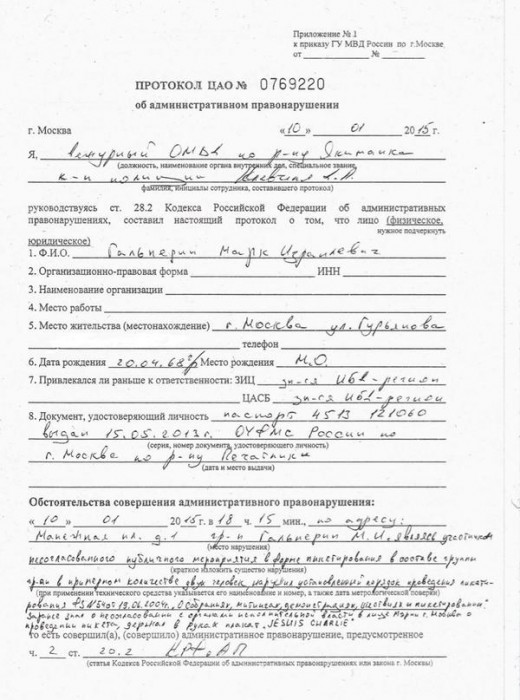 Приложение № 1
к приказу ГУ МВД России по г.Москве
от ____________ № ________
ПРОТОКОЛ ЦАО № 0769220
об административном правонарушении
г. Москва «10» 01 2015г.
Я, дежурный ОМВД по р-ну Якиманка
(должность, наименование органа внутренних дел, специальное звание,
к-н полиции
фамилия, инициалы сотрудника, составившего протокол)
руководствуясь ст. 28.2 Кодекса Российской Федерации об административных
правонарушениях, составил настоящий протокол о том, что лицо (физическое,
нужное подчеркнуть
юридическое)
1. Ф.И.О. Гальперин Марк Израилевич
2. Организационно-правовая форма ____________ ИНН ____________
3. Наименование организации
4. Место работы
5. Место жительства (местонахождение) г. Москва ул. Гурьянова
телефон
6. Дата рождения 20.04.68 г/р Место рождения М.О.
7. Привлекался ли раньше к ответственности: ЗИЦ зн-ся ИБД-регион
ЦАСБ зн-ся ИБД-регион
8. Документ, удостоверяющий личность паспорт 4513 121060
выдан 15.05.2013г. ОУФМС России по
(серия, номер документа, удостоверяющего личность)
г. Москве по р-ну Печатники
(дата и место выдачи)
Обстоятельства совершения административного правонарушения:
«10» 01 2015г. в 18 ч. 15 мин., по адресу:
Манежная пл. д.1 гр-н Гальперин М.И. являясь участником
(место нарушения)
несогласованного публичного мероприятия в форме пикетирования в составе группы
(краткое изложить существо нарушения)
гр-ан в примерном количестве двух человек, нарушив установленный порядок проведения пикети-
(при применении технического средства указывается его наименование и номер, а также дата метрологической поверки)
рования ФЗ № 54 от 19.06.2004г. „О собраниях, митингах, демонстрациях, шествиях и пикетировании".
Заранее зная о несогласовании с органами исполнительной власти в лице Мэрии г. Москвы о
проведении пикета, держал в руках плакат „JESUIS CHARLIE"
то есть совершил(а), (совершило) административное правонарушение, предусмотренное
ч. 2 ст. 20.2 КРФоАП
(статья Кодекса Российской Федерации об административных правонарушениях или закона г. Москвы)